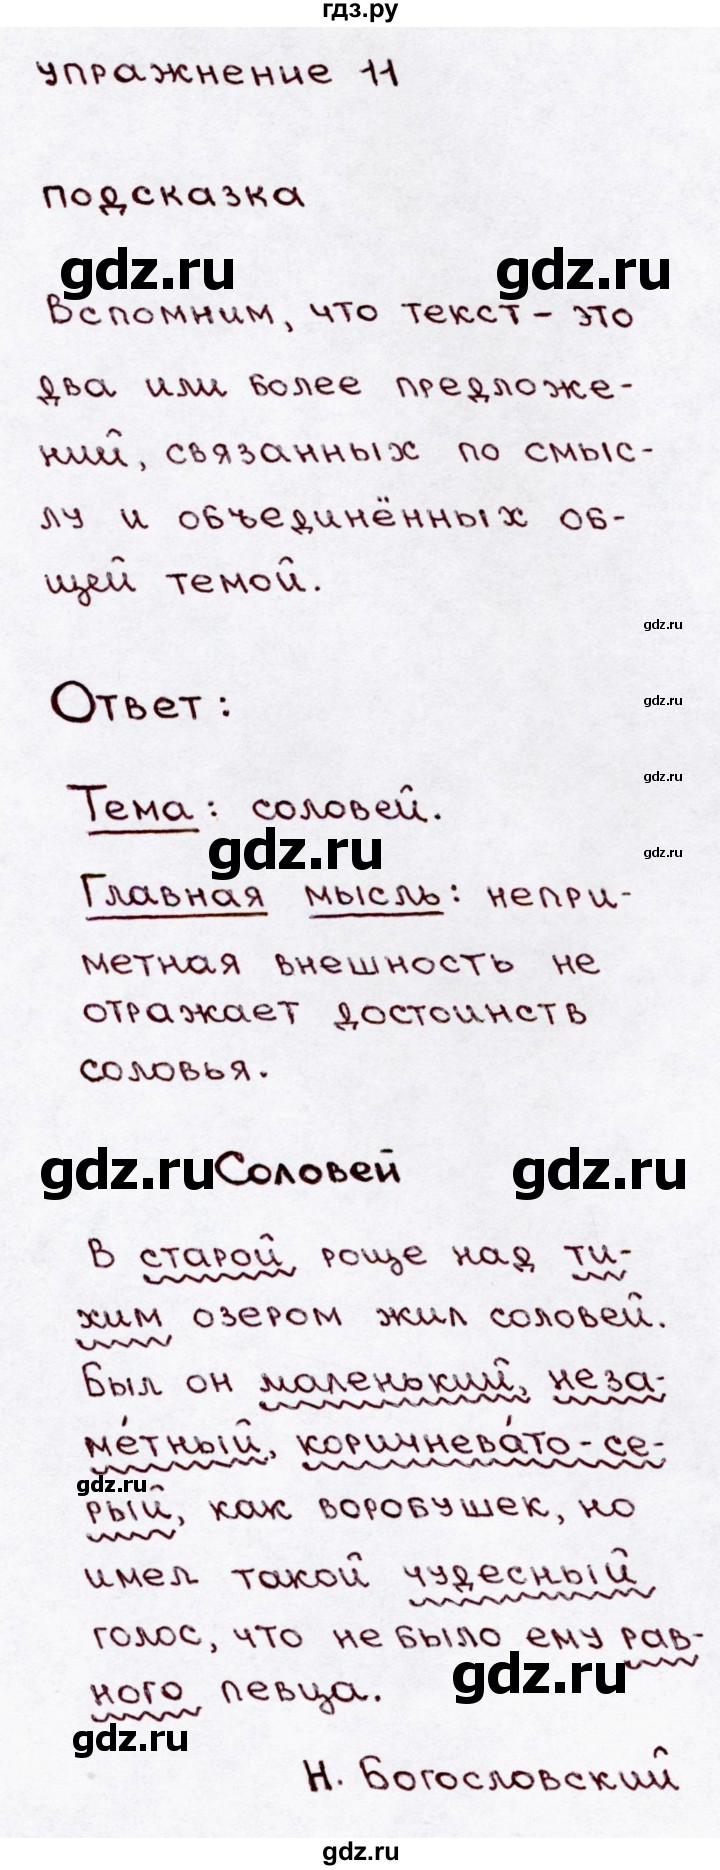 гдз.ру
упражнение 11
подсказка
gdz.ru gdz.ru
Вспомним, что текст - это
два или более предложе-
ний, связанных по смыс-
лу и объединённых об-
щей темой.
gdz.ru
Ответ:
gdz.ru
gdz.ru
Тема: соловей.
gdz.ru
gdz.ru
Главная мысль: непри-
метная внешность не
отражает достоинств
соловья.
gdz.ru Соловей gdz.ru
В старой роще над ти-
хим озером жил соловей.
Был он маленький, неза-
ме́тный, коричнева́то-се-
gdz.ru
рый, как воробушек, но
имел такой чудесный
голос, что не было ему рав-
gdz.ru
ного певца.
gdz.ru
Н. Богословский
gdz.ru